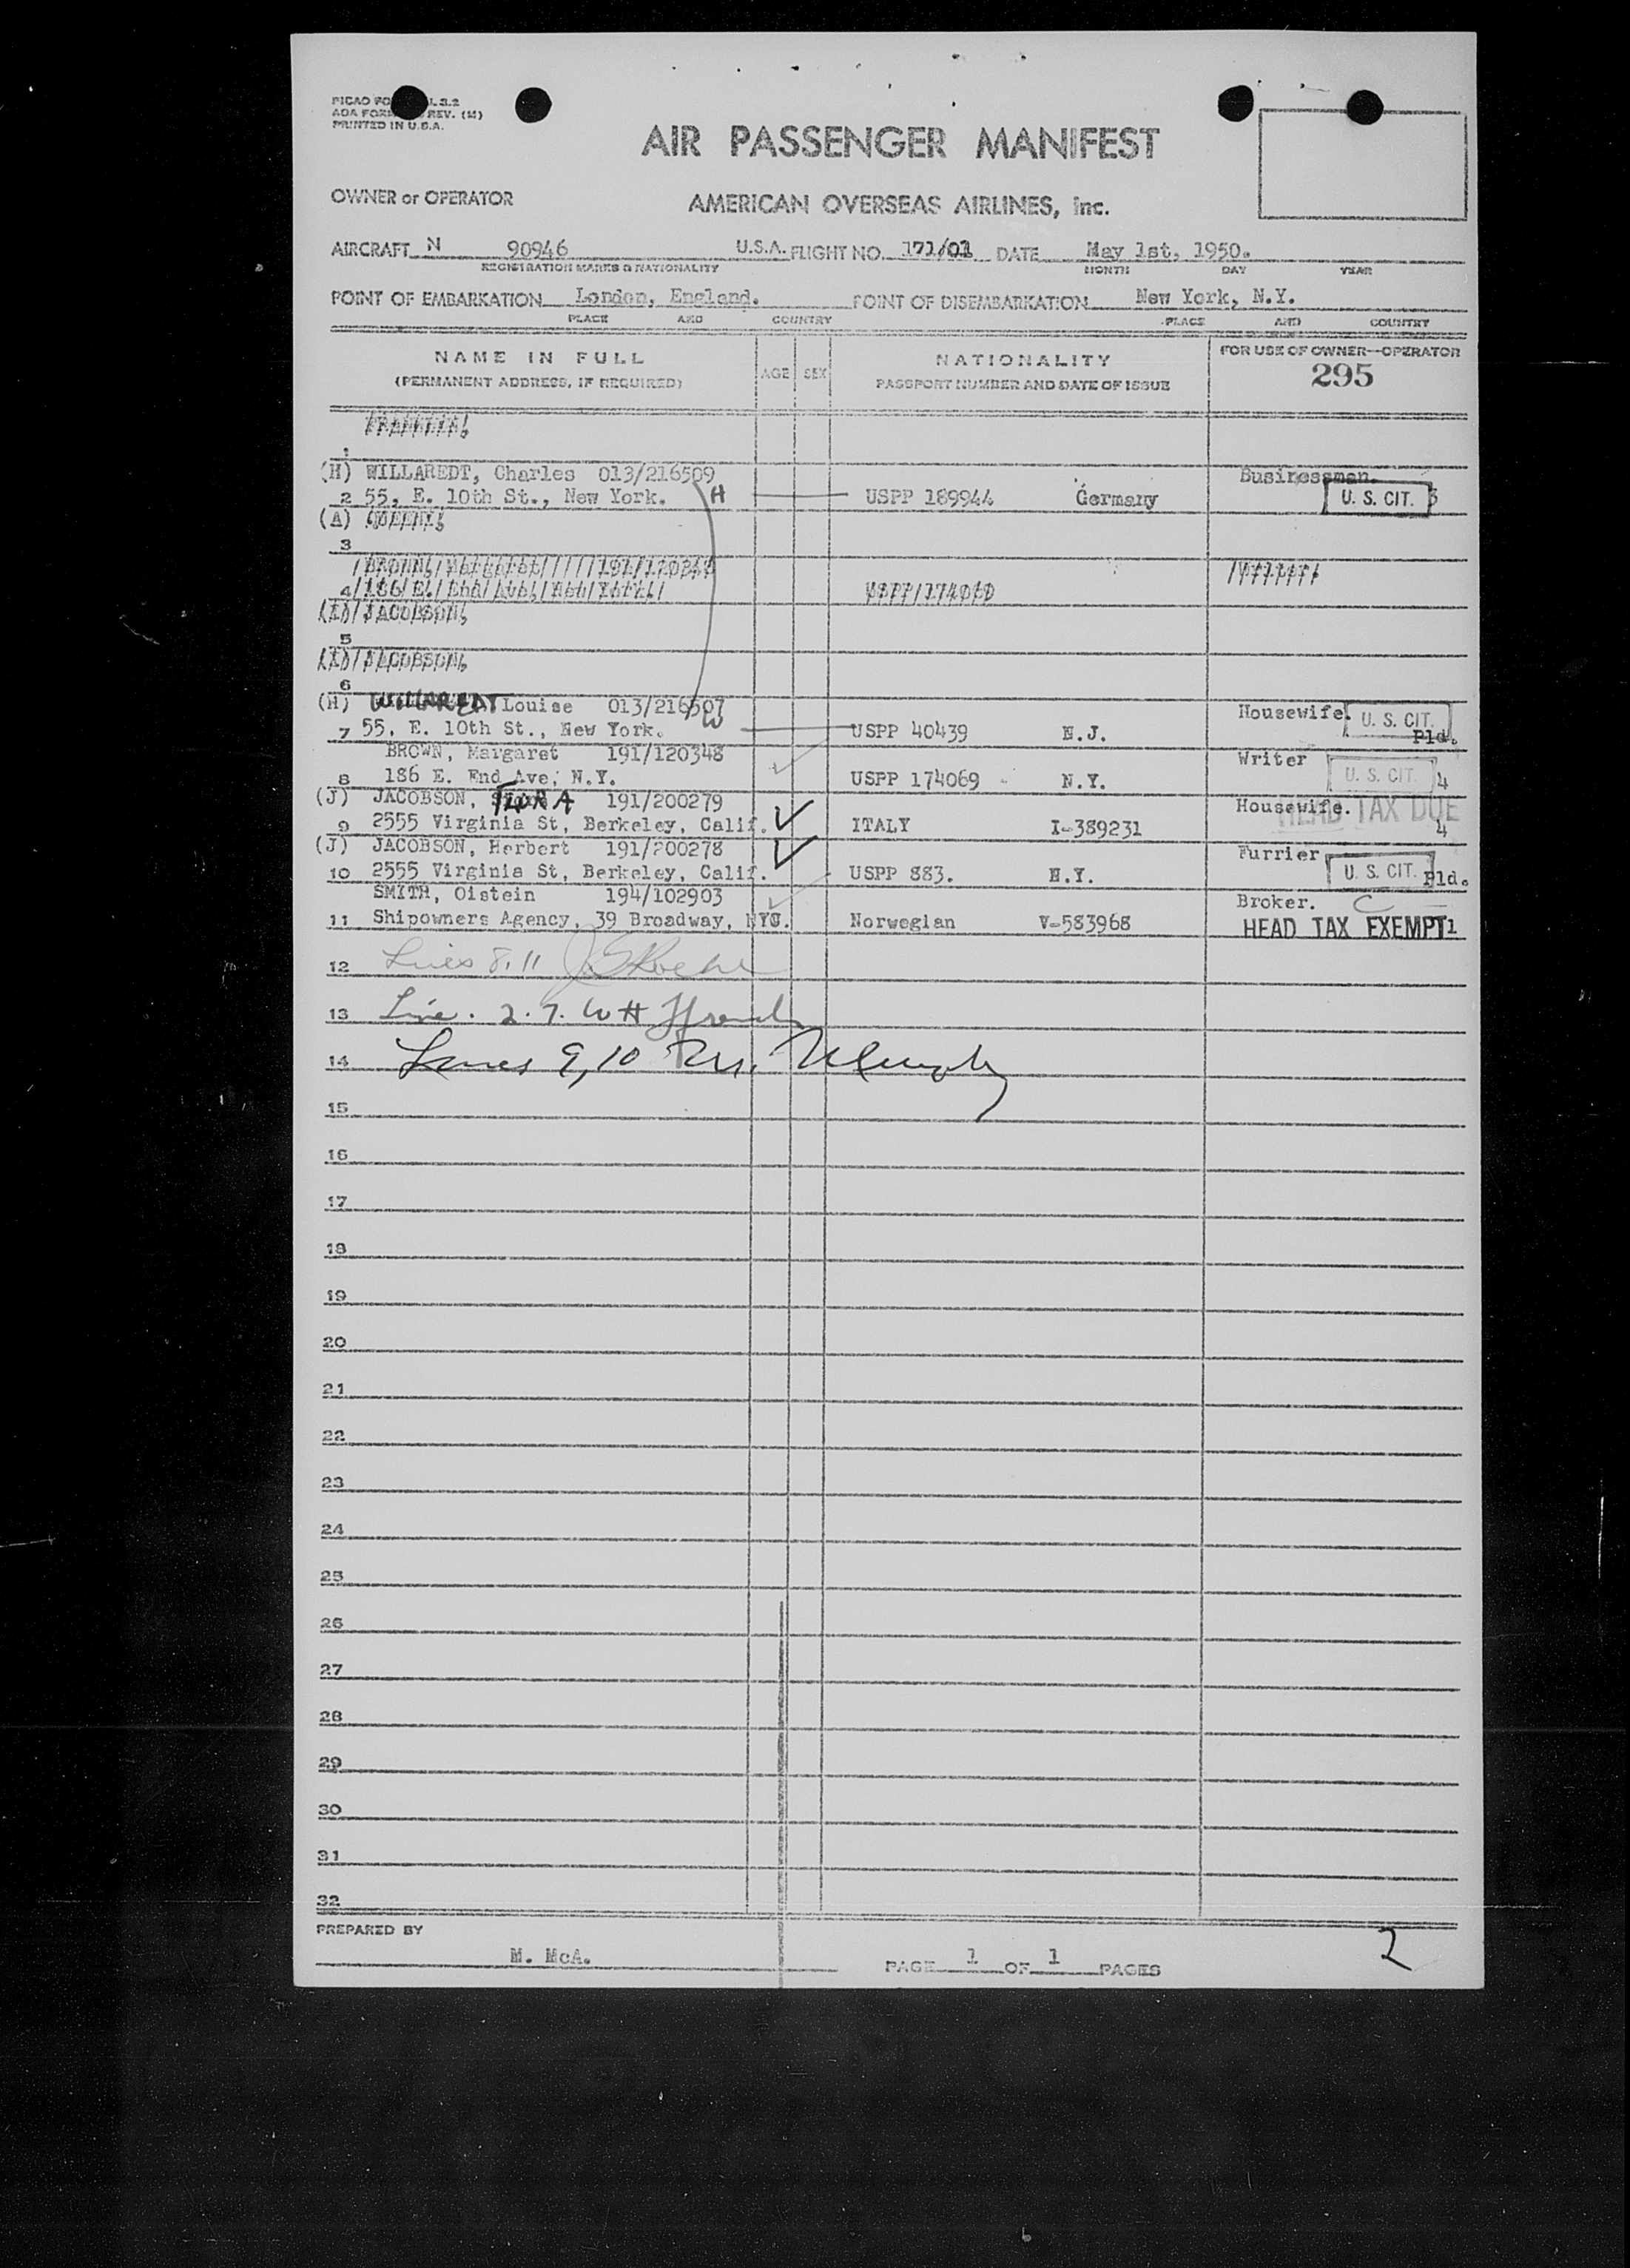 PICAO FO
ADA FORM REV. (M)
PRINTED IN U.S.A.
AIR PASSENGER MANIFEST
OWNER or OPERATOR AMERICAN OVERSEAS AIRLINES, Inc.
AIRCRAFT N 90946 U.S.A. FLIGHT NO. 171/01 DATE May 1st, 1950.
REGISTRATION MARKS & NATIONALITY MONTH DAY YEAR
POINT OF EMBARKATION London, England. POINT OF DISEMBARKATION New York, N.Y.
PLACE AND COUNTRY PLACE AND COUNTRY
NAME IN FULL NATIONALITY FOR USE OF OWNER—OPERATOR
(PERMANENT ADDRESS, IF REQUIRED) AGE SEX PASSPORT NUMBER AND DATE OF ISSUE 295
1
(H) WILLAREDT, Charles 013/216509 Businessman.
2 55, E. 10th St., New York. H USPP 189944 Germany U. S. CIT. 3
(A)
3
BROWN, Margaret 191/120348
4 186 E. End Ave, New York USPP 174069
(J) JACOBSON,
5
(J) JACOBSON,
6
(H) WILLAREDT Louise 013/216507 Housewife. U. S. CIT.
7 55, E. 10th St., New York. W USPP 40439 N.J. Pld.
BROWN, Margaret 191/120348 Writer
8 186 E. End Ave, N.Y. USPP 174069 N.Y. U. S. CIT. 4
(J) JACOBSON, 191/200279 Housewife. HEAD TAX DUE
9 2555 Virginia St, Berkeley, Calif. ITALY I-389231 4
(J) JACOBSON, Herbert 191/200278 Furrier
10 2555 Virginia St, Berkeley, Calif. USPP 883. N.Y. U. S. CIT. Pld.
SMITH, Oistein 194/102903 Broker. C
11 Shipowners Agency, 39 Broadway, NYC. Norwegian V-583968 HEAD TAX EXEMPT 1
12 Lines 8, 11
13 Line. 2. 7.
14 Lines 9, 10
15
16
17
18
19
20
21
22
23
24
25
26
27
28
29
30
31
32
PREPARED BY
M. McA. PAGE 1 OF 1 PAGES 2